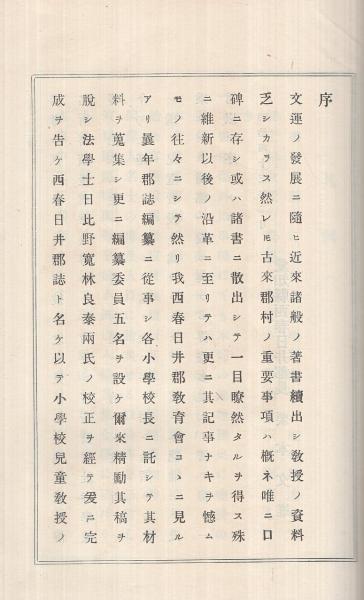 序
文運ノ發展ニ隨ヒ近來諸般ノ著書續出シ敎授ノ資料
乏シカラス然レモ古來郡村ノ重要事項ハ概ネ唯ニ口
碑ニ存シ或ハ諸書ニ散出シテ一目瞭然タルヲ得ス殊
ニ維新以後ノ沿革ニ至リテハ更ニ其記事ナキヲ憾ム
モノ往々ニシテ然リ我西春日井郡敎育會コヽニ見ル
アリ曩年郡誌編纂ニ從事シ各小學校長ニ託シテ其材
料ヲ蒐集シ更ニ編纂委員五名ヲ設ケ爾來精勵其稿ヲ
脫シ法學士日比野寬林良泰兩氏ノ校正ヲ經テ爰ニ完
成ヲ告ケ西春日井郡誌ト名ケ以テ小學校兒童敎授ノ